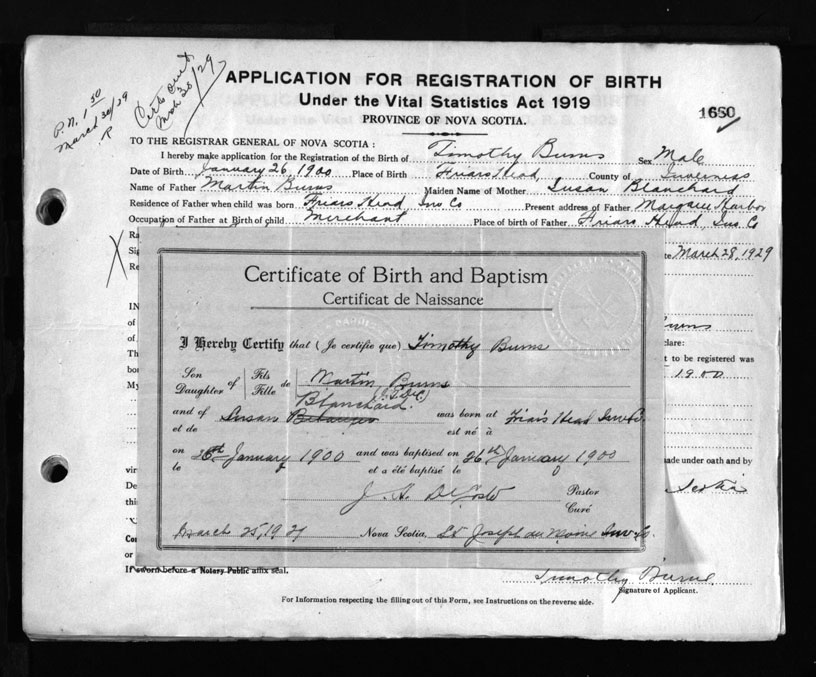 P.N. 1 50
March 30/29
R
Certs sent
Mch 30/29
APPLICATION FOR REGISTRATION OF BIRTH
Under the Vital Statistics Act 1919
PROVINCE OF NOVA SCOTIA.
1680
TO THE REGISTRAR GENERAL OF NOVA SCOTIA:
I hereby make application for the Registration of the Birth of Timothy Burns Sex Male
Date of Birth January 26, 1900 Place of Birth Friars Head County of Inverness
Name of Father Martin Burns Maiden Name of Mother Susan Blanchard
Residence of Father when child was born Friars Head Inv Co Present address of Father Margaree Harbor
Occupation of Father at Birth of child Merchant Place of birth of Father Friars Head, Inv. Co
Ra
Sig
te March 28, 1929
Re
Certificate of Birth and Baptism
Certificat de Naissance
IN
of
Burns
I Hereby Certify that (Je certifie que) Timothy Burns
of
clare:
Th
t to be registered was
bo
1900
My
Son Daughter of Fils Fille de Martin Burns
Blanchard
and of Susan was born at Friars Head Inv Co.
et de est né à
on 26th January 1900 and was baptised on 26th January 1900
le et a été baptisé le
made under oath and by
vir
De
Scotia
J. A. DeCoste Pastor
Curé
March 25, 1929 Nova Scotia, St Joseph du Moine Inv Co.
Con
or
If sworn before a Notary Public affix seal.
Timothy Burns
Signature of Applicant.
For Information respecting the filling out of this Form, see Instructions on the reverse side.